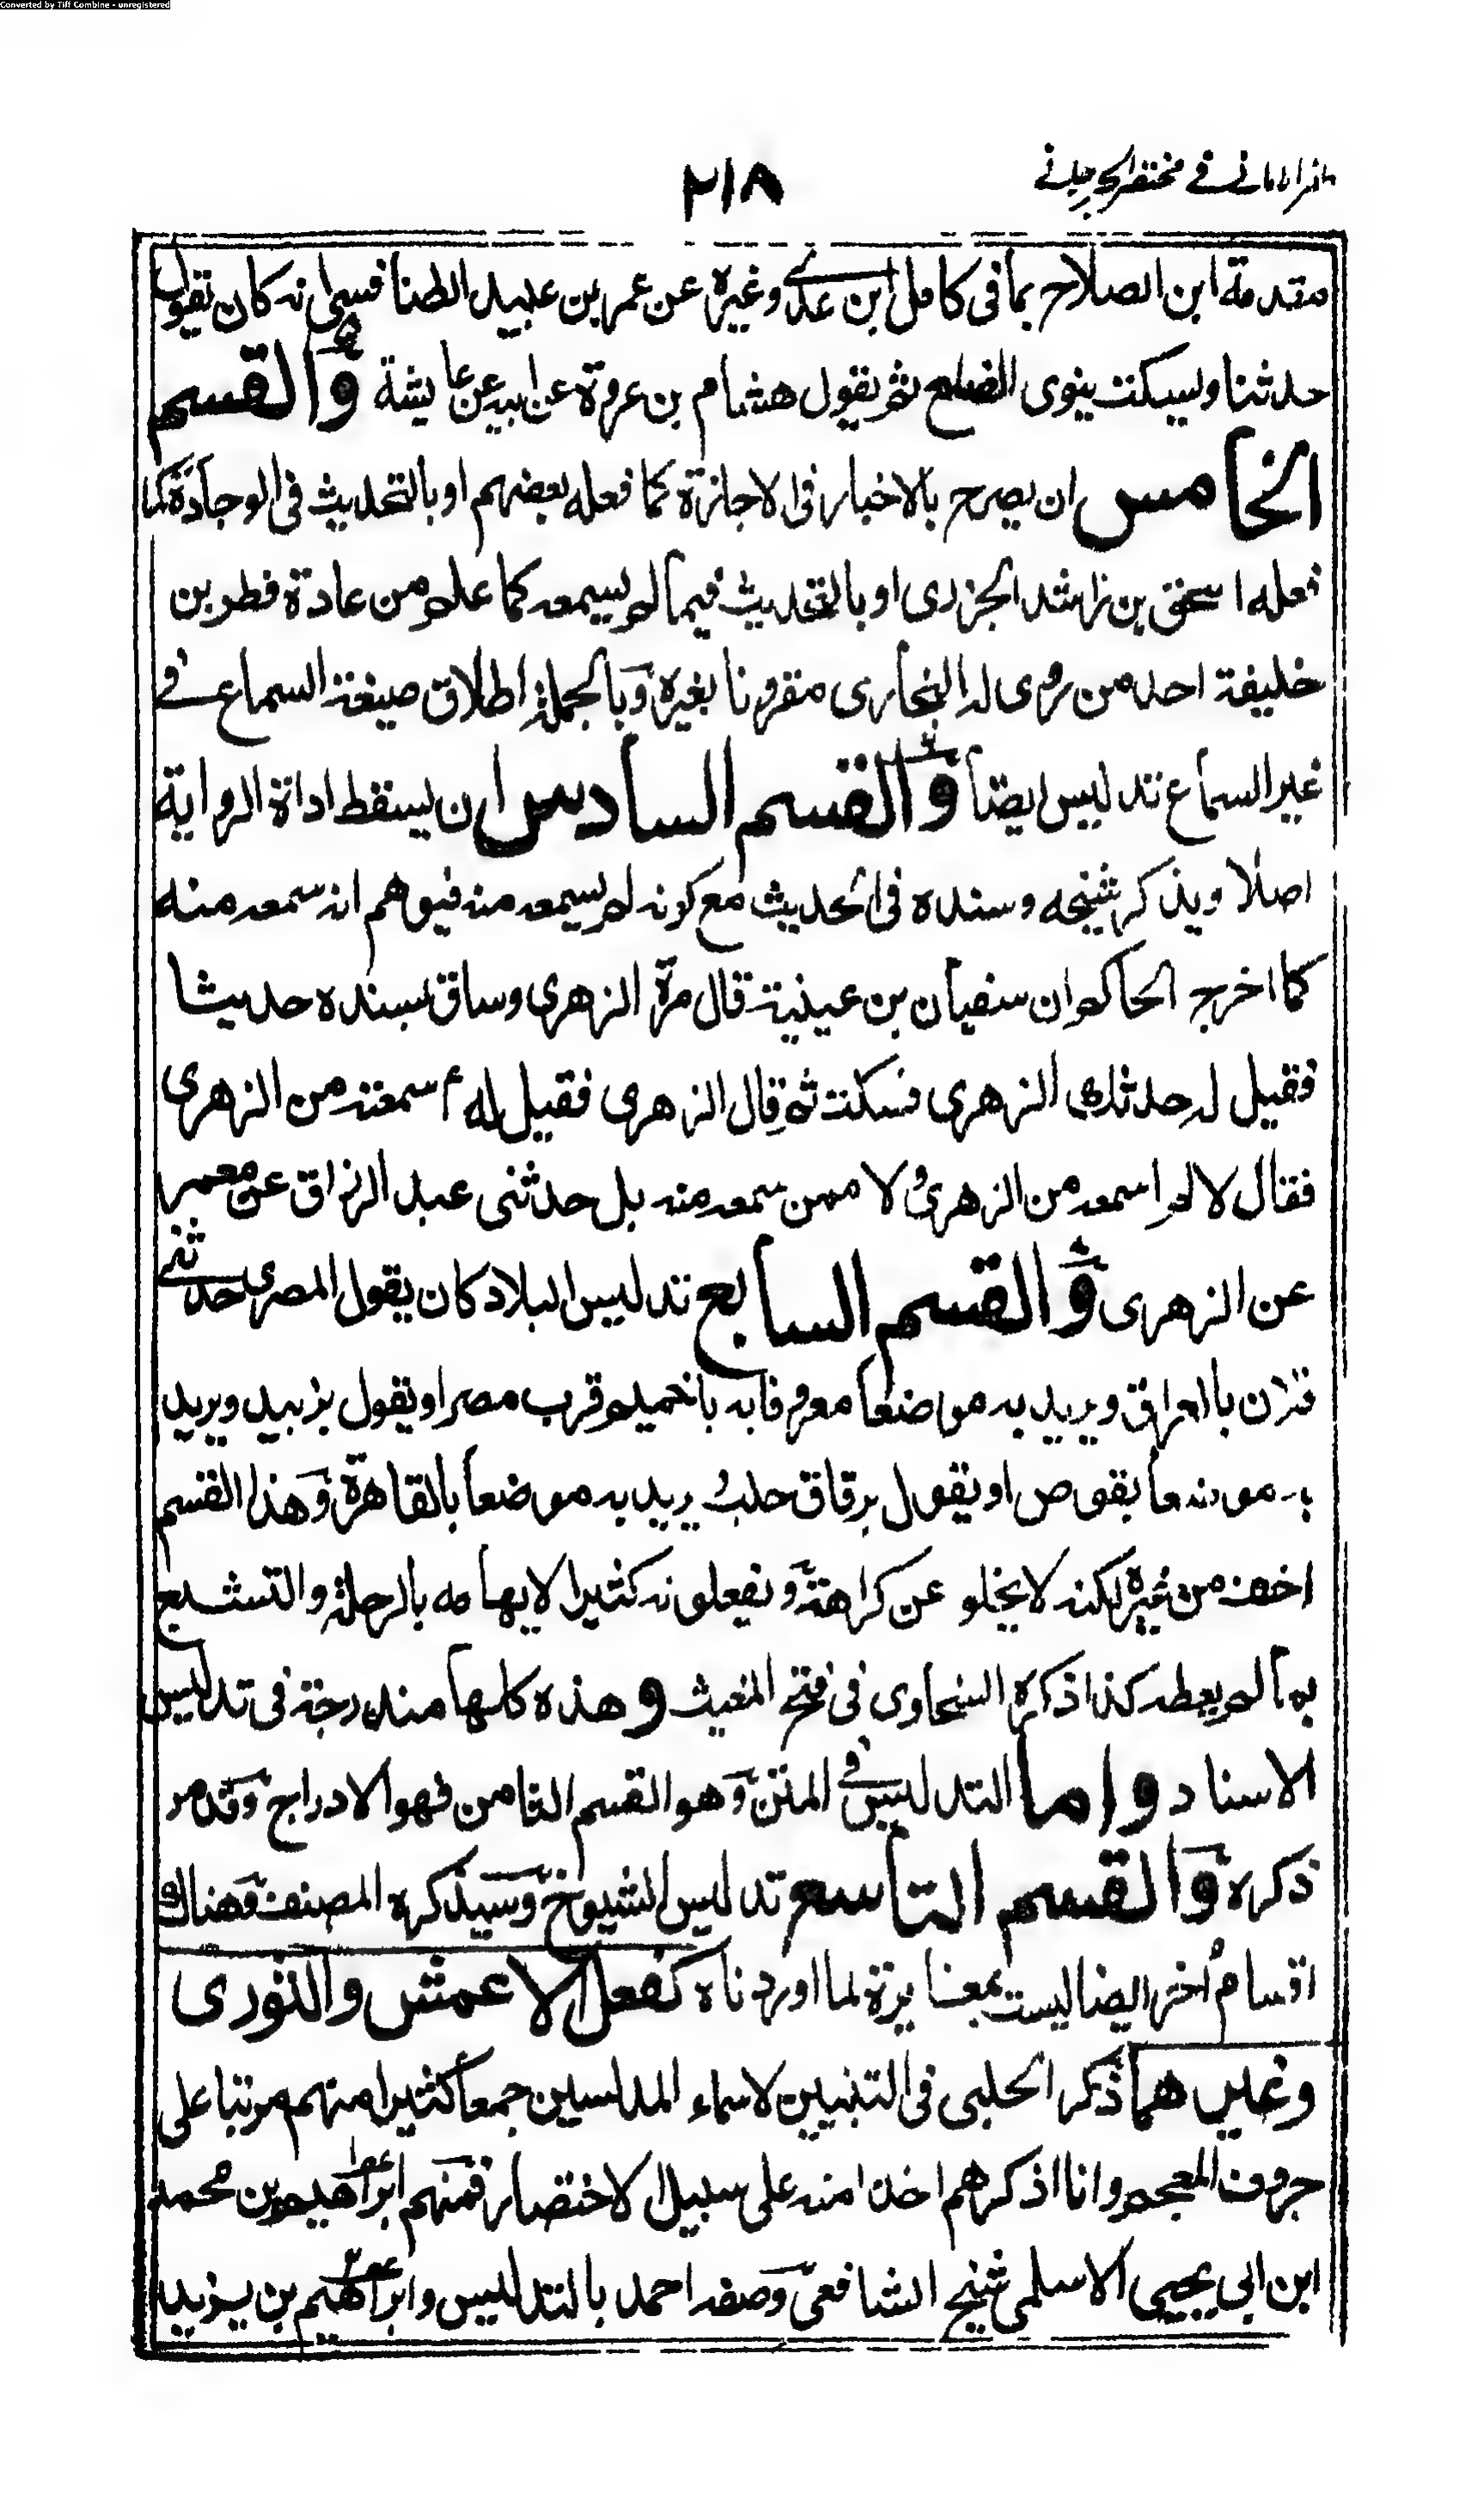 Converted by Tiff Combine - unregistered
ظفر الاماني في مختصر الجرجاني
٢١٨
مقدمة ابن الصلاح بما فى كامل ابن عدى وغيره عن عمر بن عبيد الطنافسى انه كان يقول
حدثنا ويسكت ينوى القطع ثم يقول هشام بن عروة عن ابيه عن عايشة والقسم
الخامس ان يصرح بالاخبار فى الاجازة كما فعله بعضهم او بالتحديث فى الوجادة كما
فعله اسحق بن راشد الجزرى او بالتحديث فيما لم يسمعه كما علم من عادة فطر بن
خليفة احد من روى له البخارى مقرونا بغيره وبالجملة اطلاق صيغة السماع فى
غير السماع تدليس ايضا والقسم السادس ان يسقط اداة الرواية
اصلا ويذكر شيخه وسنده فى الحديث مع كونه لم يسمعه منه فيوهم انه سمعه منه
كما اخرج الحاكم ان سفيان بن عيينة قال مرة الزهرى وساق بسنده حديثا
فقيل له حدثك الزهرى فسكت ثم قال الزهرى فقيل له ء سمعته من الزهرى
فقال لا لم اسمعه من الزهرى ولا ممن سمعه منه بل حدثنى عبد الرزاق عن معمر
عن الزهرى والقسم السابع تدليس البلاد كان يقول المصرى حدثنى
فلان بالعراق ويريد به موضعا معروفا به باخميم قرب مصر او يقول بزبيد ويريد
به موضعا بقوص او يقول بزقاق حلب يريد به موضعا بالقاهرة وهذا القسم
اخف من غيره لكنه لا يخلو عن كراهة ويفعلونه كثيرا لايهامه بالرحلة والتشبع
بما لم يعطه كذا ذكره السخاوى فى فتح المغيث وهذه كلها مندرجة فى تدليس
الاسناد واما التدليس فى المتن وهو القسم الثامن فهو الادراج وقد مر
ذكره والقسم التاسع تدليس الشيوخ وسيذكره المصنف وهناك
اقسام اخر ايضا ليست بمغايرة لما اوردناه كفعل الاعمش والثورى
وغيرهما ذكر الحلبى فى التبيين لاسماء المدلسين جمعا كثيرا منهم مرتبا على
حروف المعجم وانا اذكرهم اخذا منه على سبيل الاختصار فمنهم ابراهيم بن محمد
ابن ابى يحيى الاسلمى شيخ الشافعى وصفه احمد بالتدليس وابراهيم بن يزيد